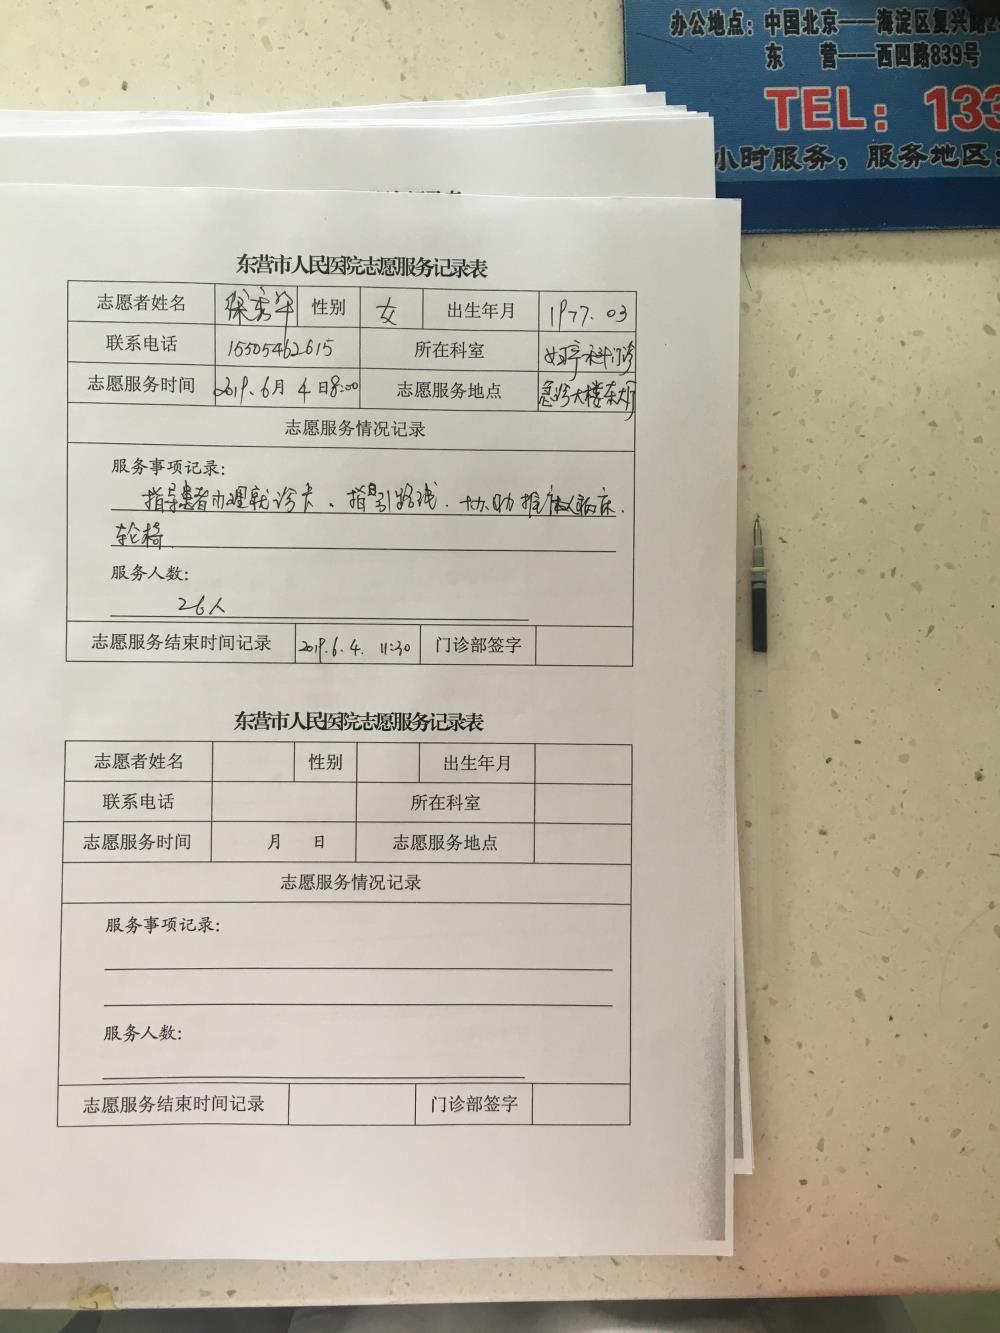 办公地点：中国北京——海淀区复兴路
东 营——西四路839号
TEL：133
小时服务，服务地区：
东营市人民医院志愿服务记录表
志愿者姓名 性别 女 出生年月 1977.03
联系电话 15505462615 所在科室 妇产科门诊
志愿服务时间 2019.6月4日8:00 志愿服务地点 急诊大楼东大厅
志愿服务情况记录
服务事项记录：
指导患者办理就诊卡、指引路线.协助推病人病床.
轮椅.
服务人数：
26人
志愿服务结束时间记录 2019.6.4. 11:30 门诊部签字
东营市人民医院志愿服务记录表
志愿者姓名 性别 出生年月
联系电话 所在科室
志愿服务时间 月 日 志愿服务地点
志愿服务情况记录
服务事项记录：
服务人数：
志愿服务结束时间记录 门诊部签字